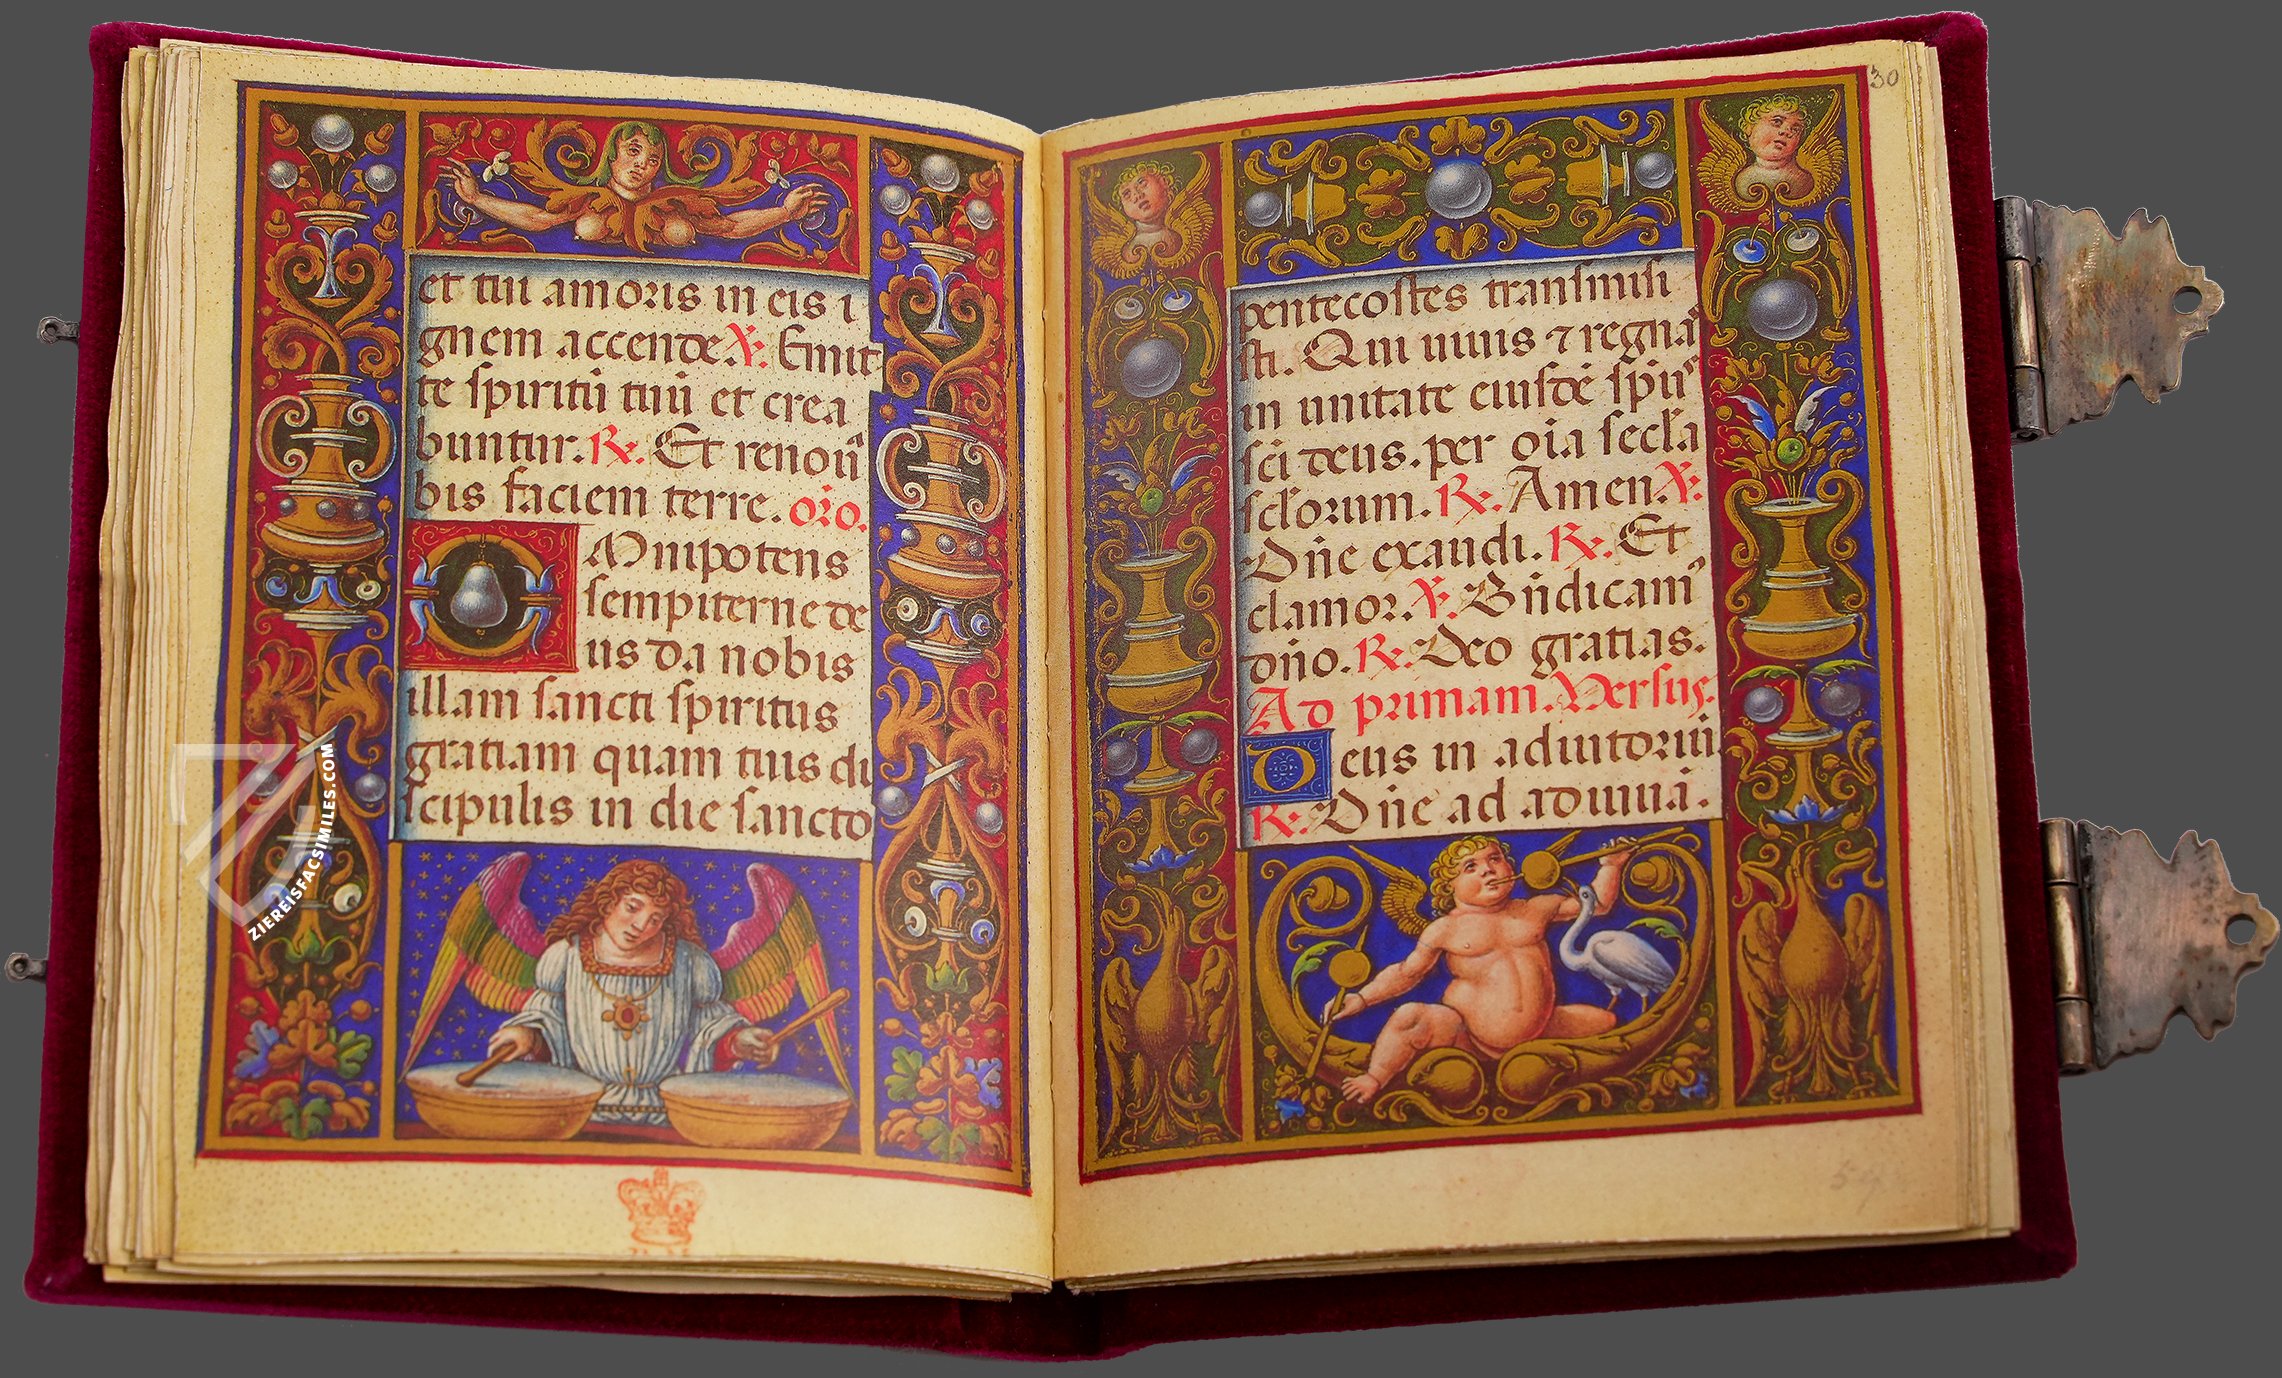 et tui amoris in eis i
gnem accende ℣. Emit-
te spiritū tuū et crea
buntur. ℟. Et renoua
bis faciem terre. or̄o.
Omnipotens
sempiterne de
us da nobis
illam sancti spiritus
gratiam quam tuis di
scipulis in die sancto
30
pentecostes transmisi
sti. Qui uiuis ⁊ regnas
in unitate eiusdē spūs
sci deus. per oīa secl'a
scl'orum. ℟. Amen. ℣.
Dn̄e exaudi. ℟. Et
clamor. ℣. Bn̄dicam⁹
dn̄o. ℟. Deo gratias.
Ad primam. Versus.
Deus in adiutoriū.
℟. Dn̄e ad adiuuā.
ZIEREISFACSIMILES.COM